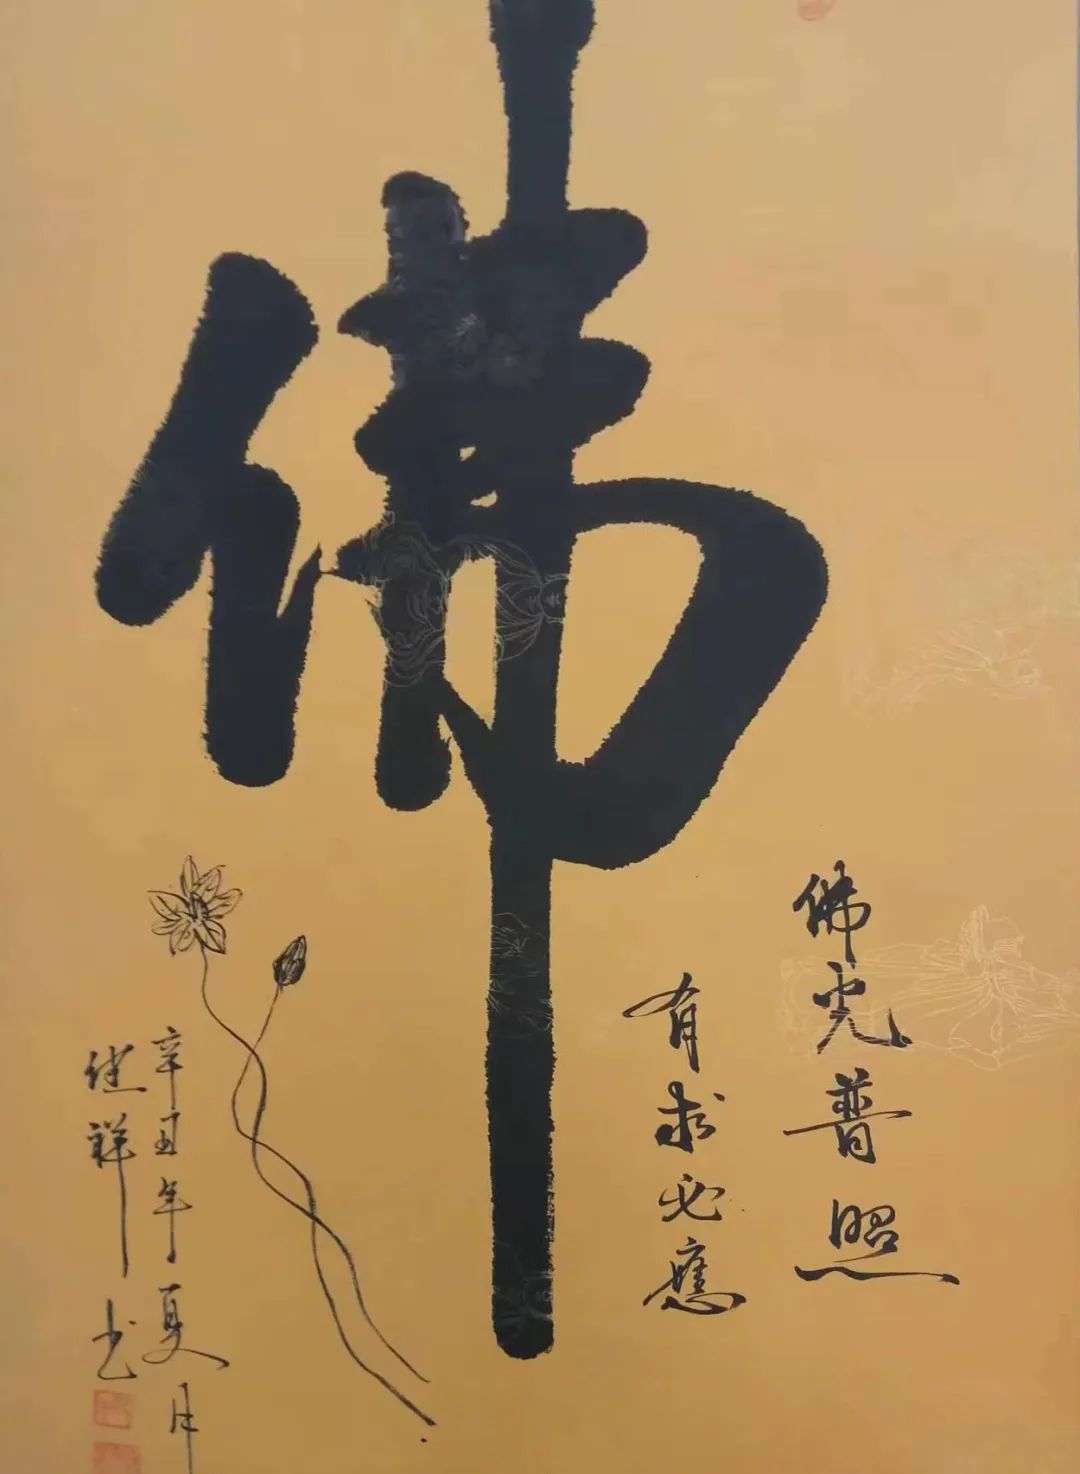 佛
佛光普照
有求必應
辛丑年夏月
继祥书